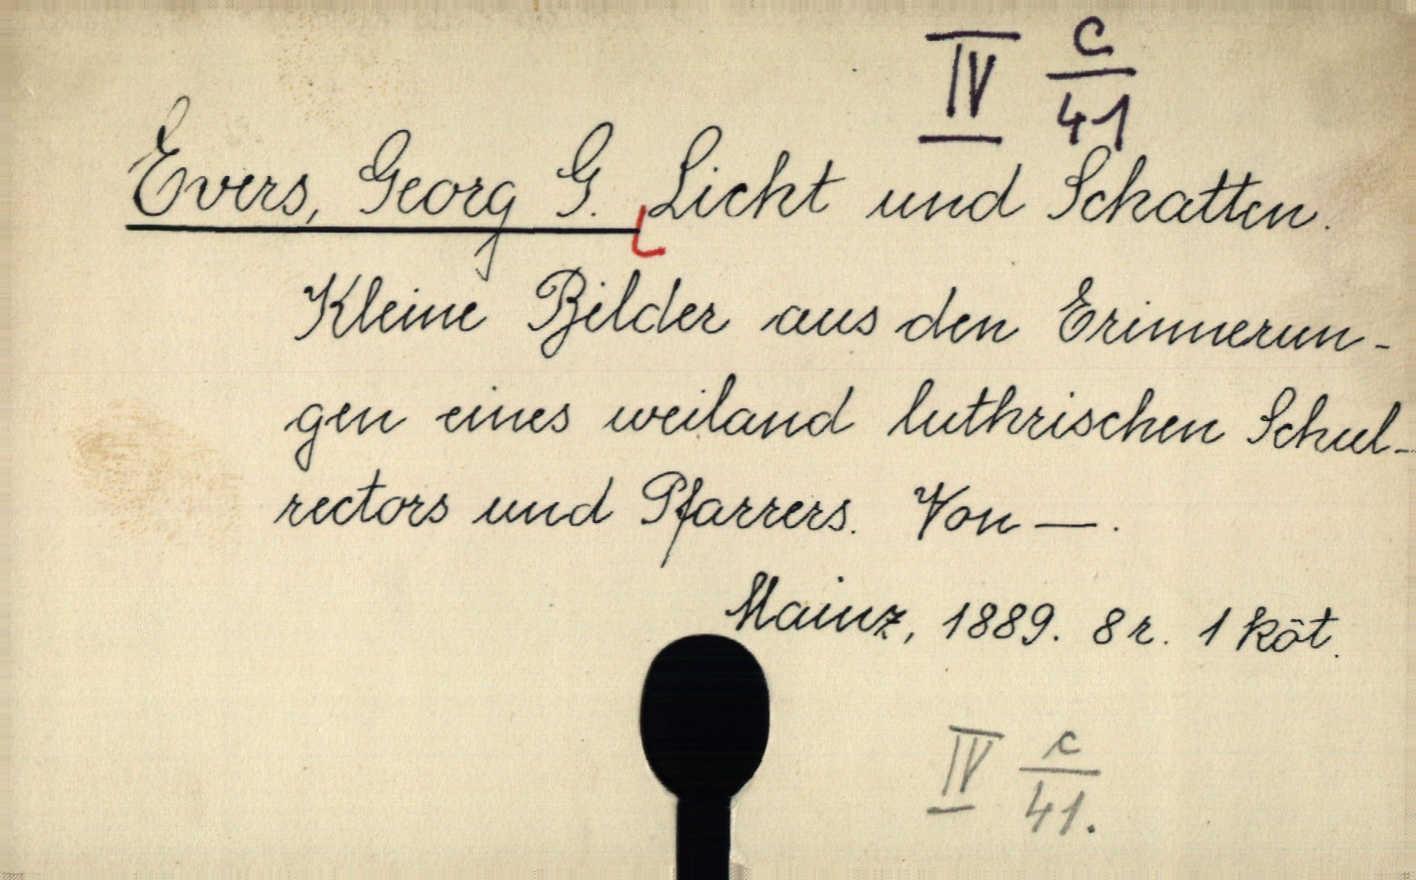 IV c/41
Evers, Georg G. Licht und Schatten.
Kleine Bilder aus den Erinnerun-
gen eines weiland luthrischen Schul-
rectors und Pfarrers. Von —.
Mainz, 1889. 8 r. 1 köt.
IV c/41.